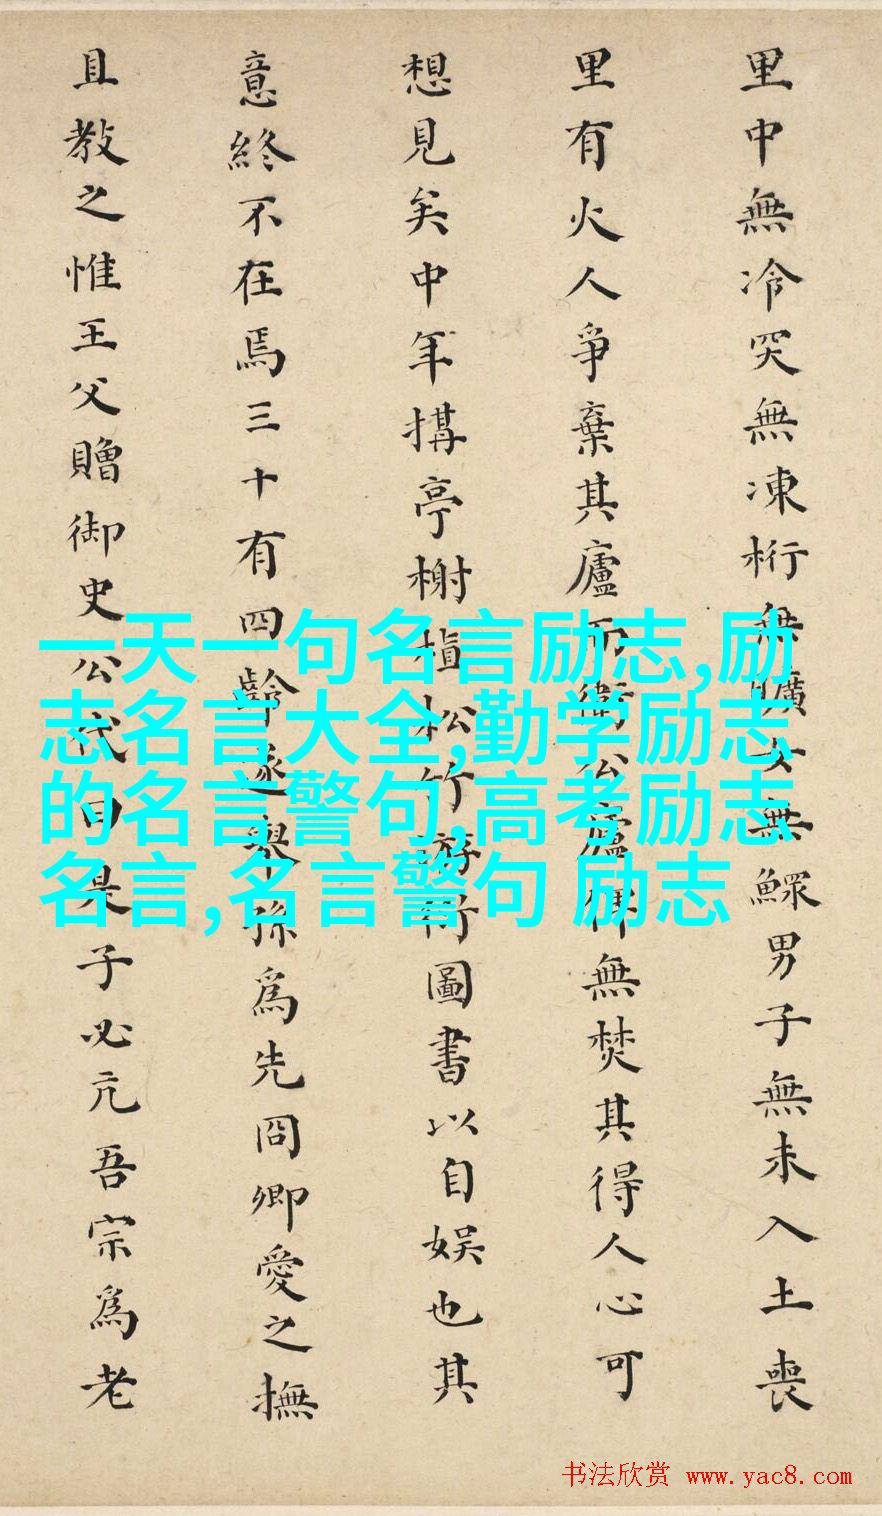 里中無冷突無凍桁無曠女無鰥男子無未入土喪
里有火人爭棄其廬而衛公廬無焚其得人心可
想見矣中年搆亭榭植松竹游衍圖書以自娛也其
意終不在焉三十有四齡遂舉孫爲先冏卿愛之撫
且教之惟王父贈御史公代曰是子必亢吾宗爲老
一天一句名言励志,励
志名言大全,勤学励志
的名言警句,高考励志
名言,名言警句 励志
书法欣赏 www.yac8.com